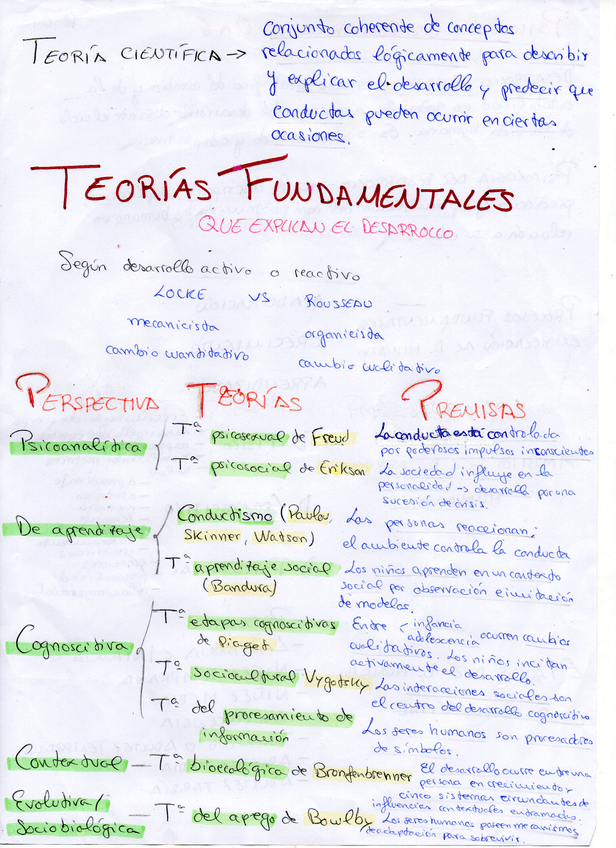 TEORÍA CIENTÍFICA → conjunto coherente de conceptos
relacionados lógicamente para describir
y explicar el desarrollo y predecir que
conductas pueden ocurrir en ciertas
ocasiones.
TEORÍAS FUNDAMENTALES
QUE EXPLICAN EL DESARROLLO
Según desarrollo activo o reactivo
LOCKE VS ROUSSEAU
mecanicista organicista
cambio cuantitativo cambio cualitativo
PERSPECTIVA TEORÍAS PREMISAS
Psicoanalítica Tª psicosexual de Freud La conducta está controlada
por poderosos impulsos inconscientes
Tª psicosocial de Erikson La sociedad influye en la
personalidad → desarrollo por una
sucesión de crisis.
De aprendizaje Conductismo (Paulov, Las personas reaccionan;
Skinner, Watson) el ambiente controla la conducta
Tª aprendizaje social Los niños aprenden en un contexto
(Bandura) social por observación e imitación
de modelos.
Cognoscitiva Tª etapas cognoscitivas Entre infancia
de Piaget adolescencia ocurren cambios
cualitativos. Los niños incitan
activamente el desarrollo.
Tª sociocultural Vygotsky Las interacciones sociales son
el centro del desarrollo cognoscitivo
Tª del procesamiento de Los seres humanos son procesadores
información de símbolos.
Contextual — Tª bioecológica de Bronfenbrenner El desarrollo ocurre entre una
persona en crecimiento y
cinco sistemas circundantes de
influencias contextuales entramadas.
Evolutiva/ — Tª del apego de Bowlby Los seres humanos poseen mecanismos
Sociobiológica de adaptación para sobrevivir.